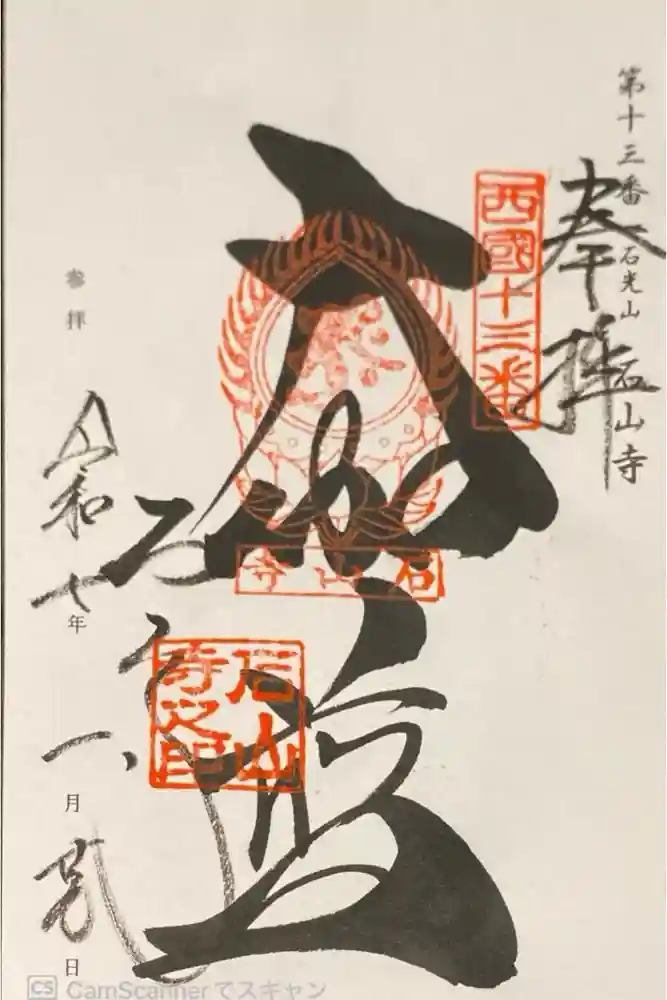 第十三番 石光山 石山寺
奉拝
西國十三番
大伽藍
石山寺
石山寺之印
石山寺
参拝 令和七年一月 日
CS CamScannerでスキャン